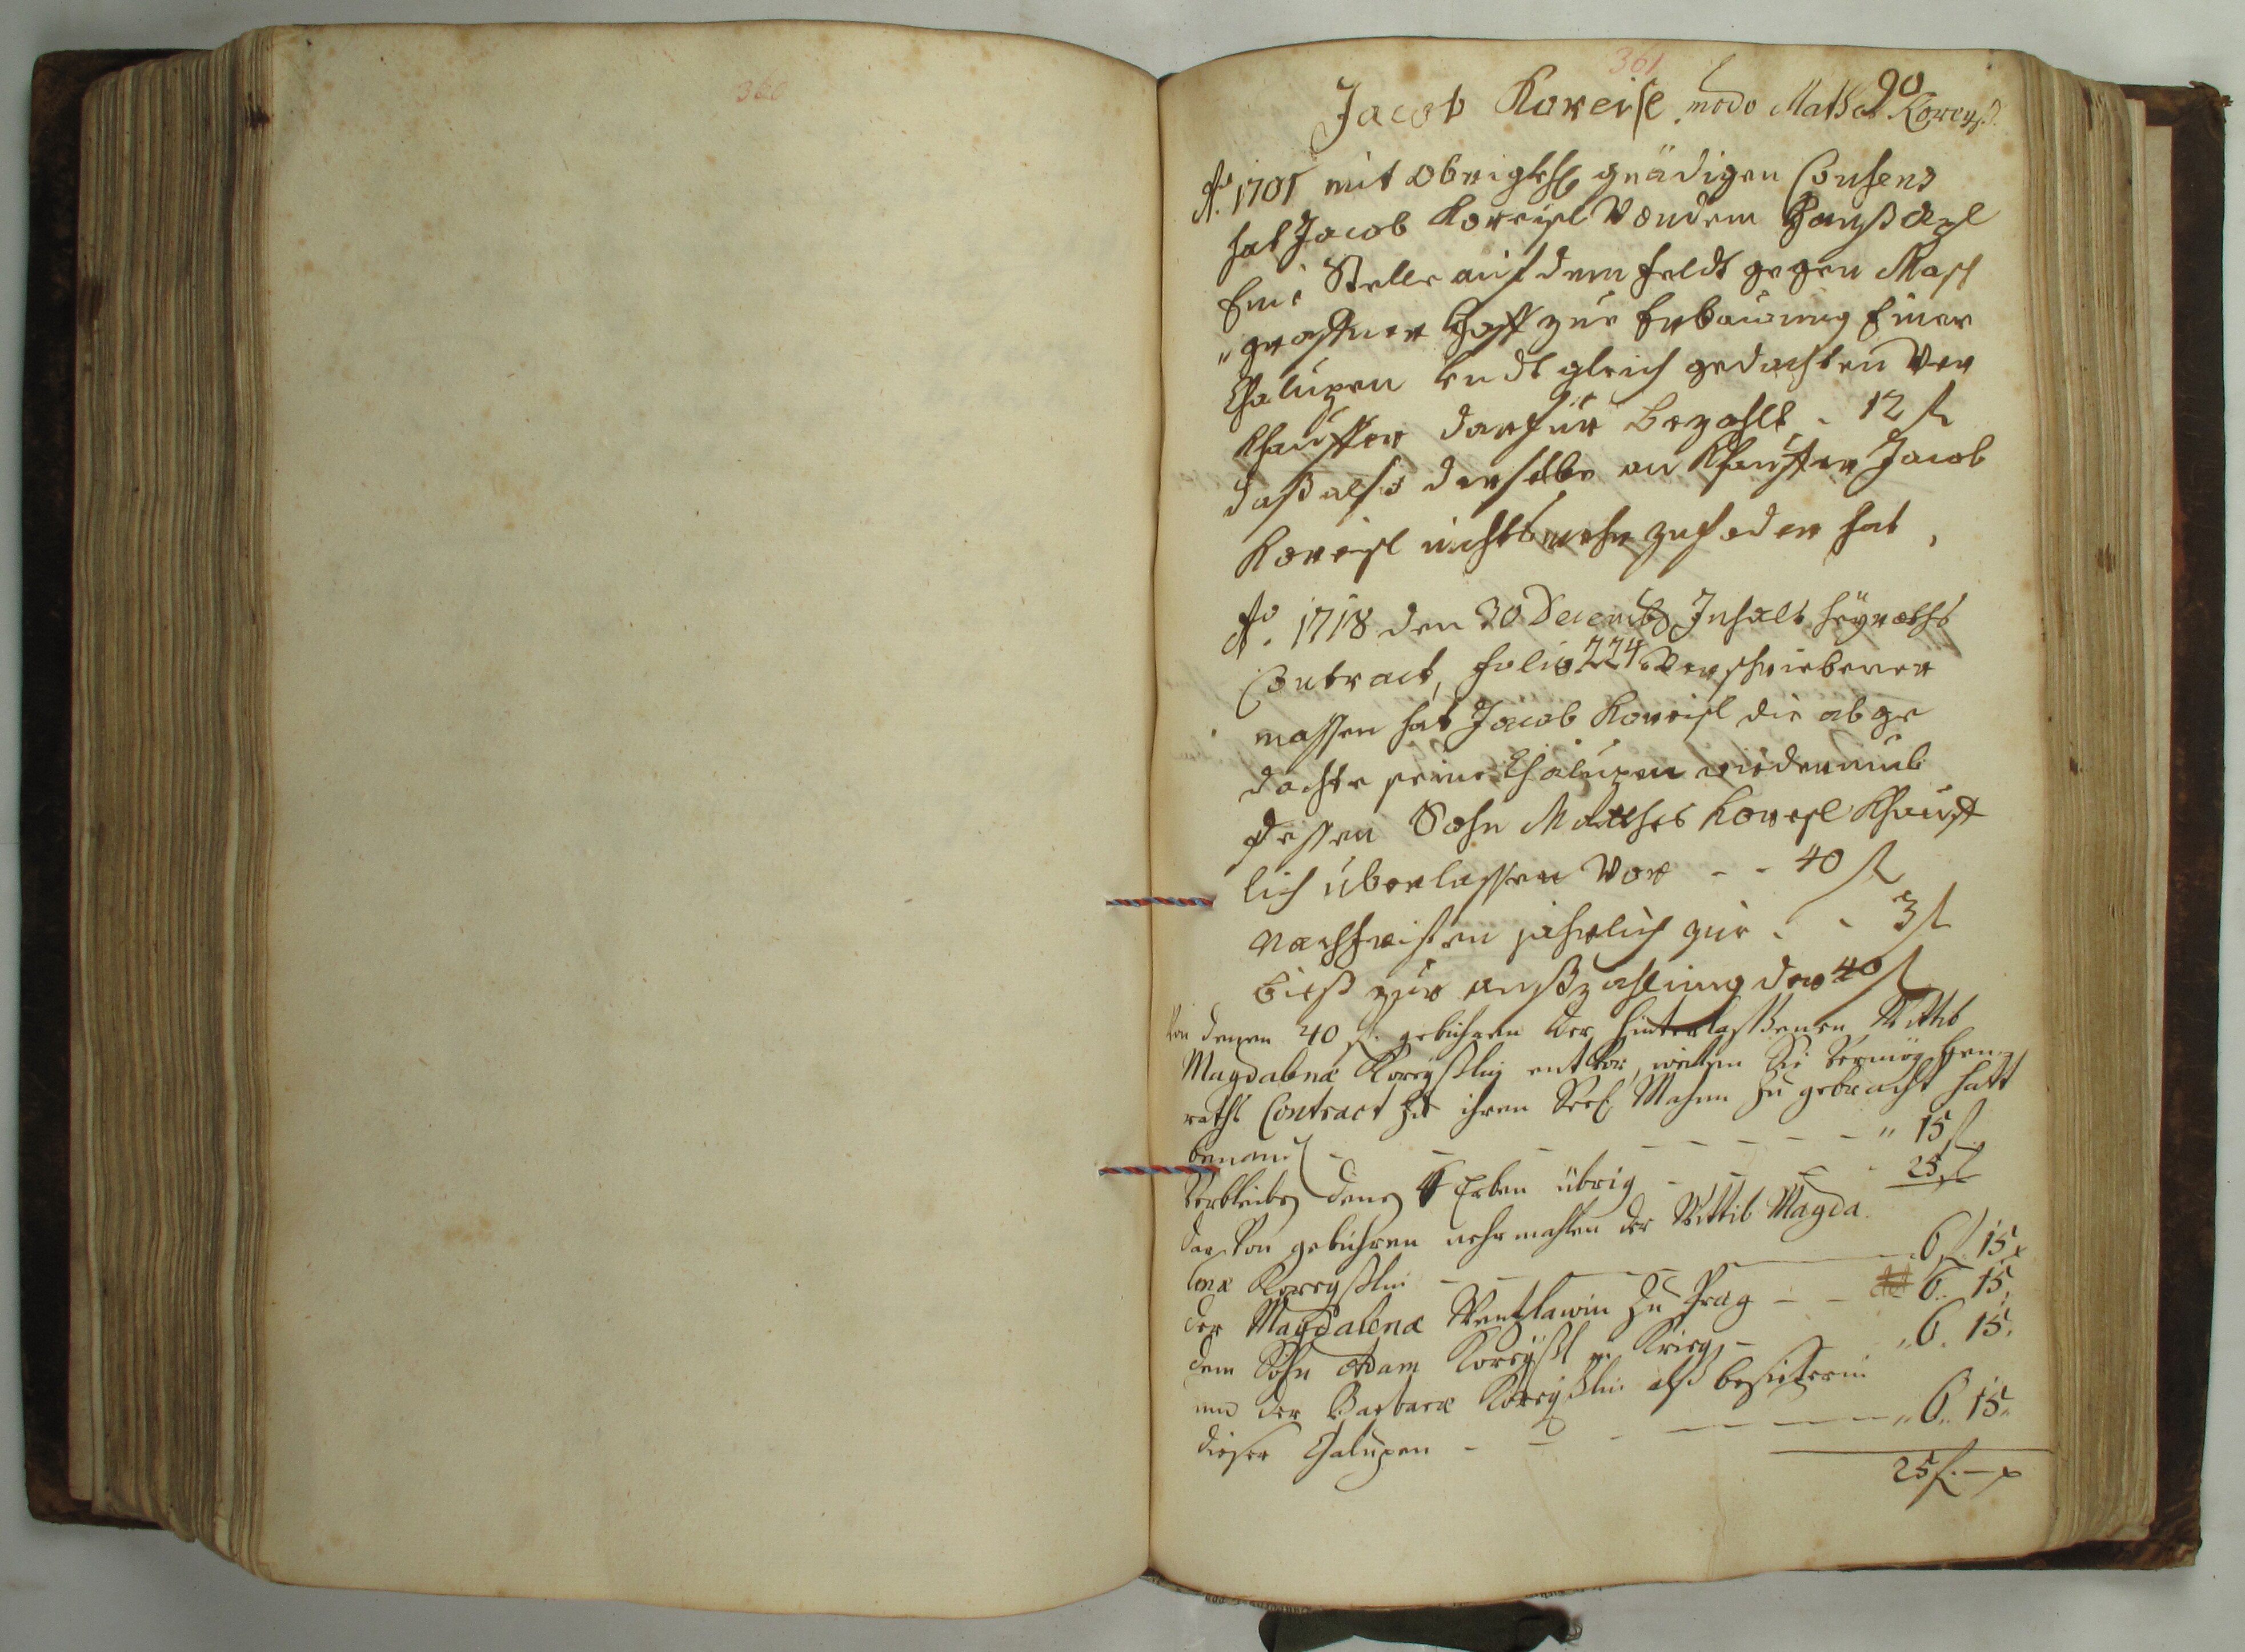 360
361
90
Jacob Koreisl modo Mathes Koreyßl
Ao. 1701 mit obrigkh. gnädigen Consens
hat Jacob Koreisl Von dem Hanß
Eine Stelle auf dem feldt gegen
Hoff zur Erbauung Einer
Chalupen kendt gleich gedachten Ver
Khauffer darfür bezahlt - 12 fl
daß also derselbe an Khauffer Jacob
Koreisl nichts mehr zu fodern hat,
Ao. 1718 den 30 Decemb. Inhalt Heyraths
Contract, folio 224 Verschriebener
massen hat Jacob Koreisl die abge
dachte seine Chalupen wiederumb
dessen Sohn Mathes Koreisl Khauff
lich überlassen Vor - - 40 fl
Nachfristen jährlich zur - - 3 fl
bieß zur außzahlung der 40 fl
Von denen 40 fl. gebühren der hinterlaßßenen Wittib
Magdalena Koreyßlin entvor, welchen Sie Vermög Hey
raths Contract zu ihren Seel. Mahnn zu gebracht hatt
benand - - - - - - - " 15 fl.
Verbleibe denen 4 Erben übrig - - - 25 fl
dar Von gebühren nochmahlen der Wittib Magda
lena Koreyßlin - - - - 6 fl. 15 x
der Magdalena Wentlawin zu Prag - - 6 " 15 "
dem Sohn Adam Koreyßl in Krieg - " 6 " 15 "
und der Barbara Koreyßlin alß besitzerin
dieser Chalupen - - - - - " 6 " 15 "
25 fl. - x